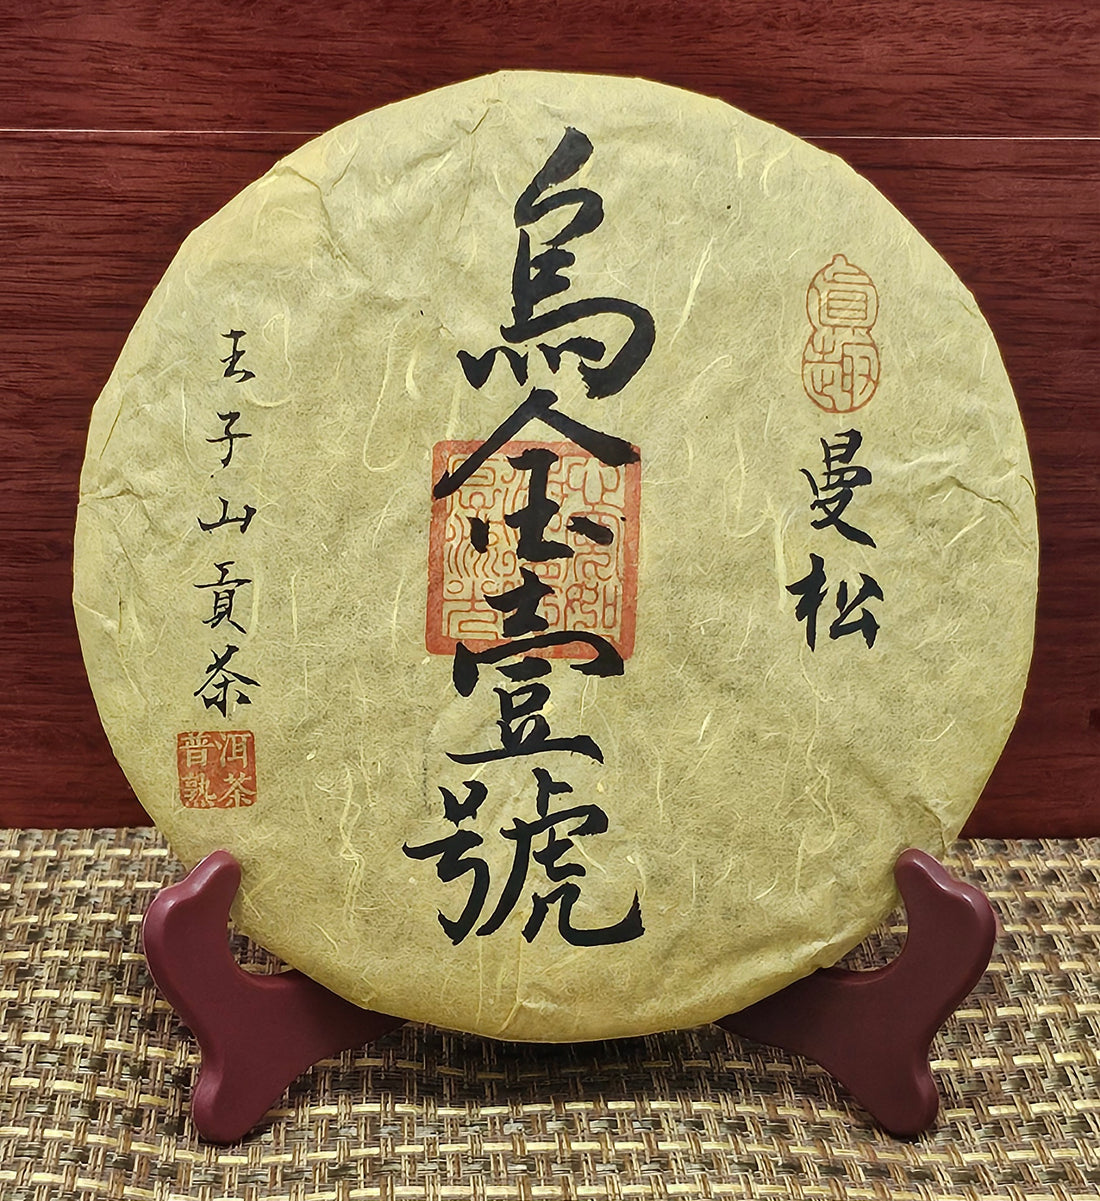 真趣
曼松
烏金壹號
王子山貢茶
普洱
熟茶